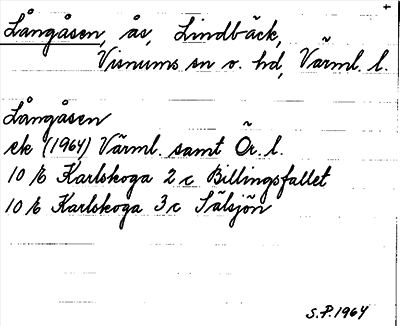 Långåsen, ås, Lindbäck,
Visnums sn o. hd, Värml. l.
Långåsen
ek (1964) Värml. samt Ör. l.
10 E Karlskoga 2 c Billingsfallet
10 E Karlskoga 3 c Sälsjön
S.P. 1964